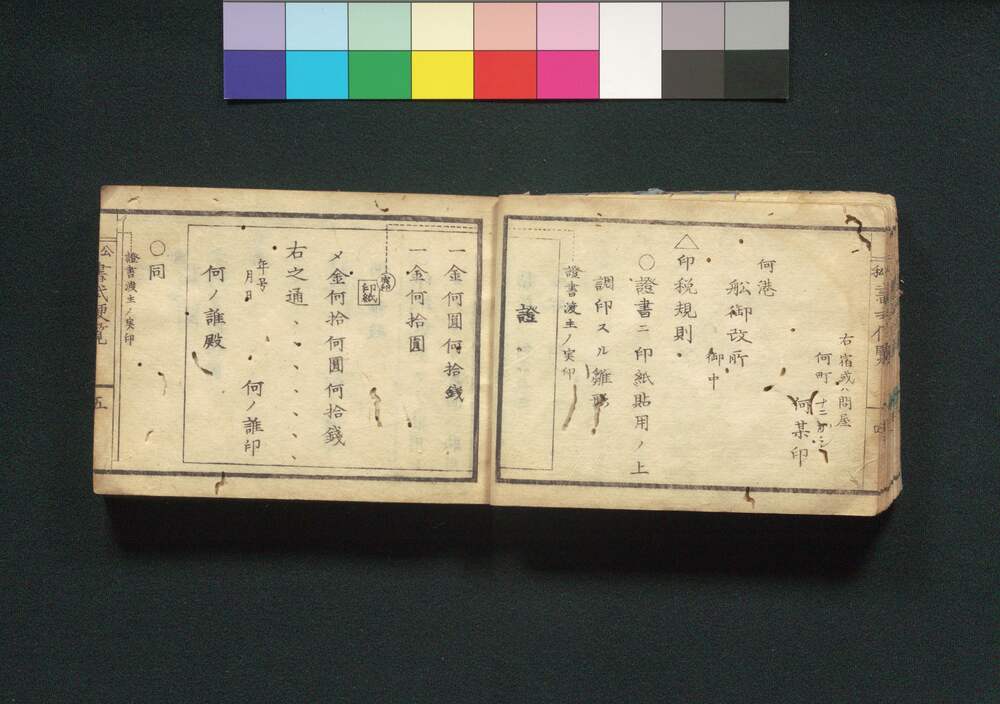 右宿或ハ問屋
何町
何某印
何港
舩御改所
御中
△印税規則
○證書ニ印紙貼用ノ上
調印スル雛形
證書渡主ノ実印
證
一金何圓何拾錢
一金何拾圓
印紙
〆金何拾何圓何拾錢
右之通、、、、、、
年号
月日
何ノ誰印
何ノ誰殿
○同
證書渡主ノ実印
公
書式便覧
五